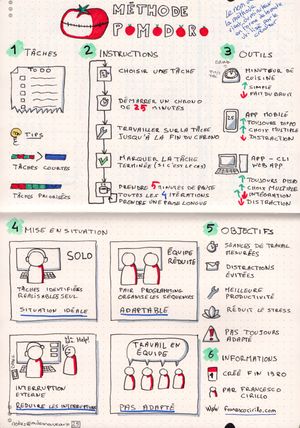 MÉTHODE
POMODORO
1 TÂCHES
TO DO
TIPS
TÂCHES COURTES
TÂCHES PRIORISÉES
2 INSTRUCTIONS
CHOISIR UNE TÂCHE
DÉMARRER UN CHRONO
DE 25 MINUTES
TRAVAILLER SUR LA TÂCHE
JUSQU'À LA FIN DU CHRONO
MARQUER LA TÂCHE
TERMINÉE (SI C'EST LE CAS)
PRENDRE 5 MINUTES DE PAUSE
TOUTES LES 4 ITÉRATIONS,
PRENDRE UNE PAUSE LONGUE
3 OUTILS
MINUTEUR DE
CUISINE
SIMPLE
FAIT DU BRUIT
APP MOBILE
TOUJOURS DISPO
CHOIX MULTIPLE
DISTRACTION
APP - CLI
WEB APP
TOUJOURS DISPO
CHOIX MULTIPLE
INTÉGRATION
DISTRACTION
4 MISE EN SITUATION
SOLO
TÂCHES IDENTIFIÉES
RÉALISABLES SEUL
SITUATION IDÉALE
ÉQUIPE
RÉDUITE
PAIR PROGRAMMING
ORGANISE LES SÉQUENCES
ADAPTABLE
Help!
INTERRUPTION
EXTERNE
RÉDUIRE LES INTERRUPTIONS
TRAVAIL EN
ÉQUIPE
PAS ADAPTÉ
5 OBJECTIFS
SÉANCES DE TRAVAIL
MESURÉES
DISTRACTIONS
ÉVITÉES
MEILLEURE
PRODUCTIVITÉ
RÉDUIT LE STRESS
PAS TOUJOURS
ADAPTÉ
6 INFORMATIONS
CRÉÉ FIN 1980
PAR FRANCESCO
CIRILLO
WWW francescocirillo.com